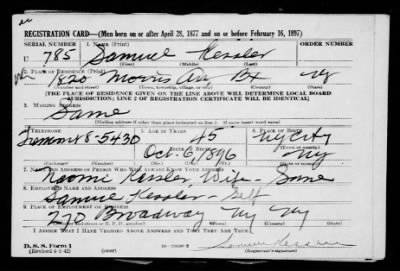 REGISTRATION CARD—(Men born on or after April 28, 1877 and on or before February 16, 1897)
SERIAL NUMBER 1. NAME (Print)
U 785 Samuel Kessler
(First) (Middle) (Last)
2. PLACE OF RESIDENCE (Print)
1820 Morris Av Bx NY
(Number and street) (Town, township, village, or city) (County) (State)
[THE PLACE OF RESIDENCE GIVEN ON THE LINE ABOVE WILL DETERMINE LOCAL BOARD
JURISDICTION; LINE 2 OF REGISTRATION CERTIFICATE WILL BE IDENTICAL]
3. MAILING ADDRESS
Same
[Mailing address if other than place indicated on line 2. If same insert word same]
4. TELEPHONE 5. AGE IN YEARS 6. PLACE OF BIRTH
8-5430 45 NY City
DATE OF BIRTH
Oct. 6, 1896 NY
7. NAME AND ADDRESS OF PERSON WHO WILL ALWAYS KNOW YOUR ADDRESS
Kessler, Wife - Same
8. EMPLOYER'S NAME AND ADDRESS
Samuel Kessler - Self
Broadway NY NY
I AFFIRM THAT I HAVE VERIFIED ABOVE ANSWERS AND THAT THEY ARE TRUE.
D. S. S. Form 1
(Revised 4-1-42) (Registrant's signature)